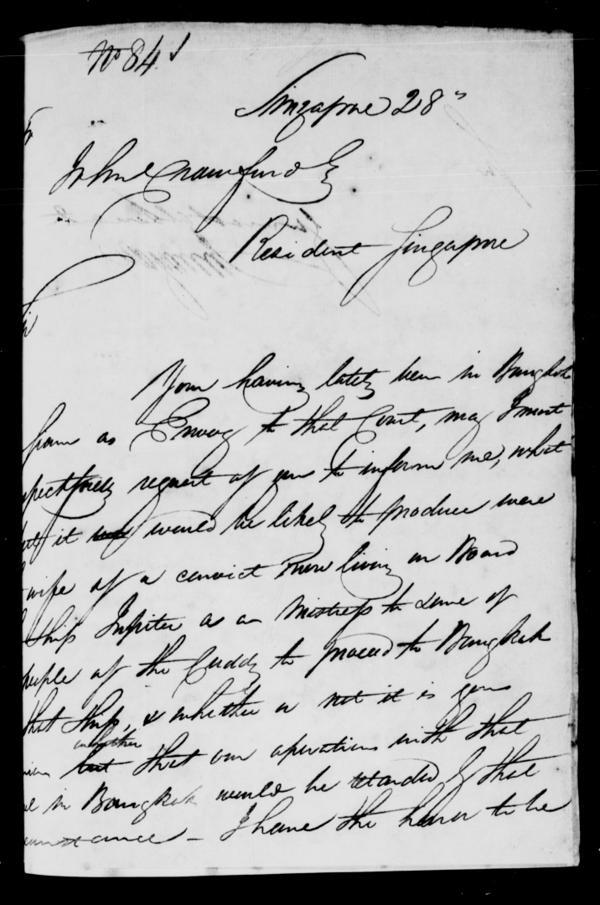 No 84
Singapore 28th
John Crawfurd Esq
Resident Singapore
Your having lately been in Bangkok
Siam as Envoy to that Court, may I most
spectfully request of you to inform me, what
it would be likely to produce were
wife of a convict now living on Board
Ship Jupiter as a Mistress to some of
people of the Cuddy to proceed to Bangkok
that Ship, & whether or not it is your
whether
that our operations with that
in Bangkok would be retarded by that
cumstance - I have the honor to be